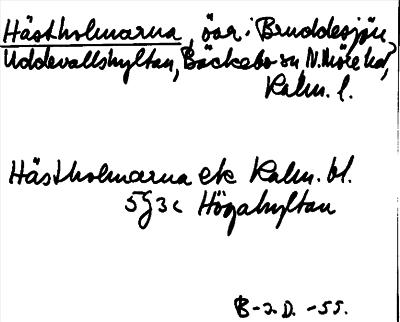 Hästholmarna, öar i Bruddesjön,
Uddevallshyltan, Bäckebo sn N. Möre hd,
Kalm. l.
Hästholmarna ek Kalm. bl.
5G3c Högahyltan
B-2.D. -55.